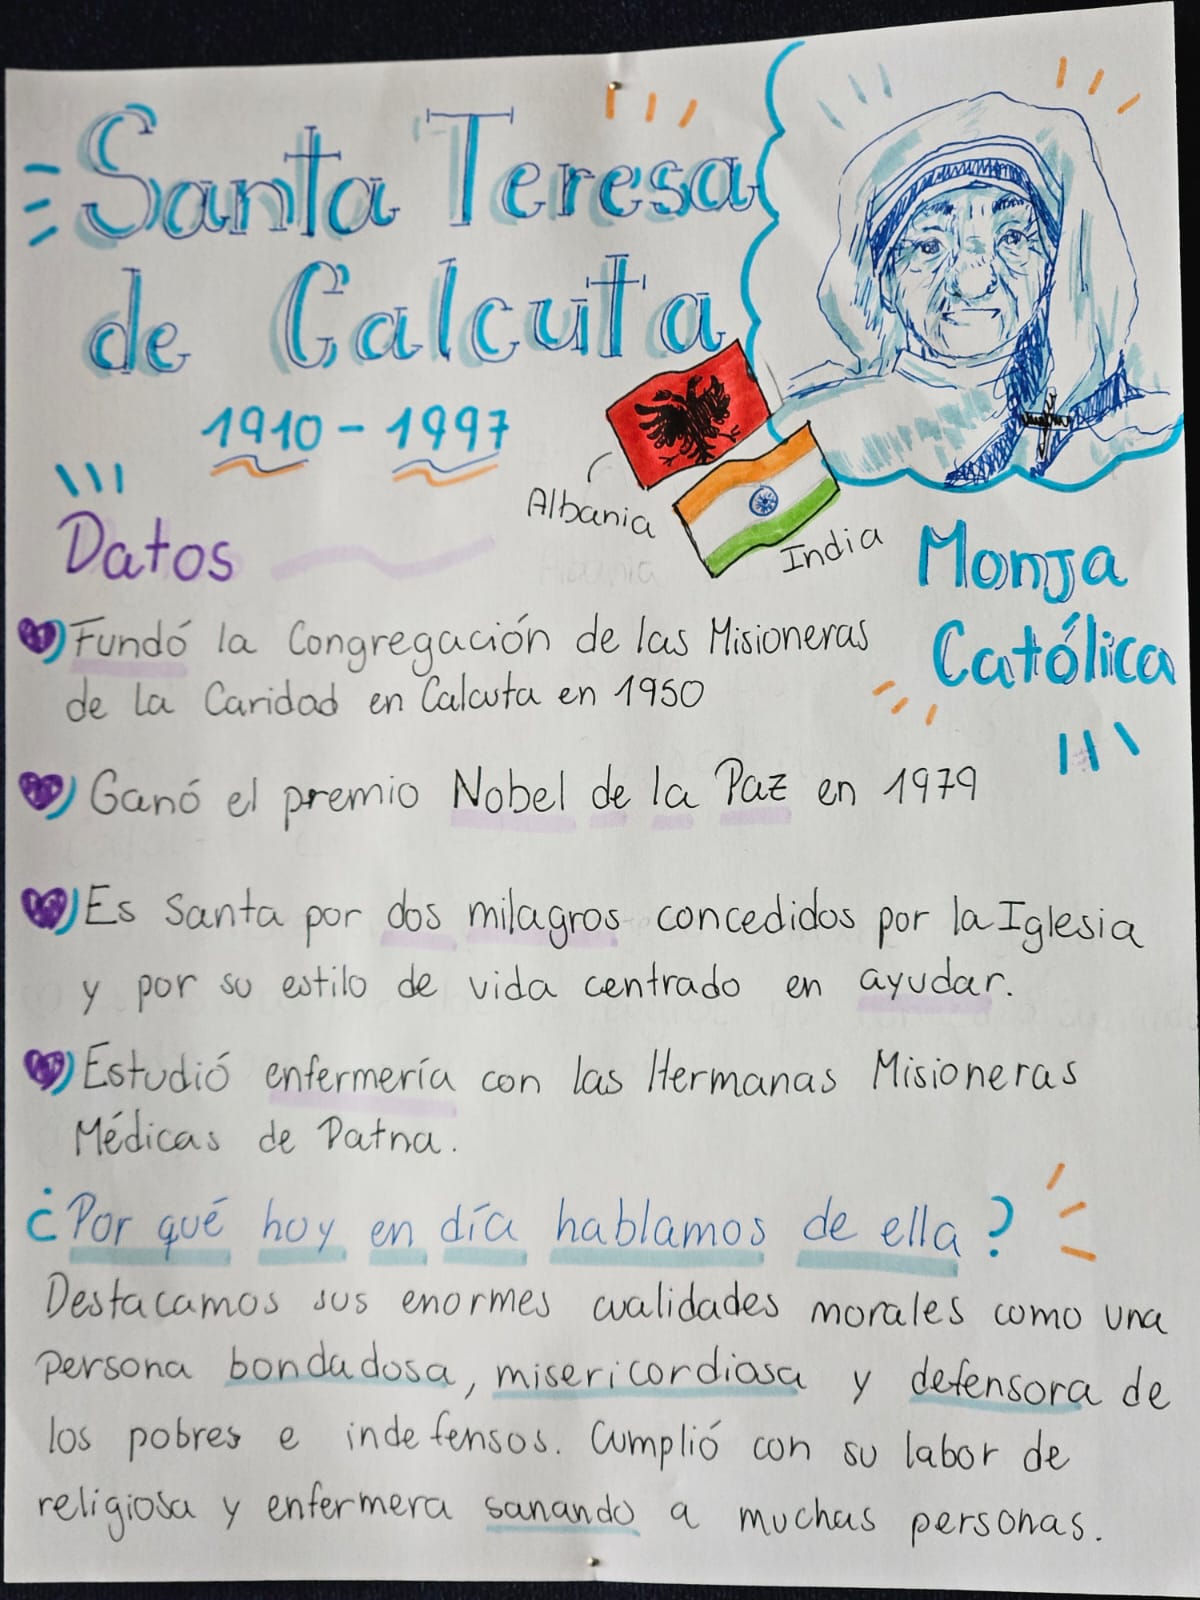 Santa Teresa
de Calcuta
1910 - 1997
Albania
India
Monja
Católica
Datos
Fundó la Congregación de las Misioneras
de la Caridad en Calcuta en 1950
Ganó el premio Nobel de la Paz en 1979
Es Santa por dos milagros concedidos por la Iglesia
y por su estilo de vida centrado en ayudar.
Estudió enfermería con las Hermanas Misioneras
Médicas de Patna.
¿Por qué hoy en día hablamos de ella?
Destacamos sus enormes cualidades morales como una
persona bondadosa, misericordiosa y defensora de
los pobres e indefensos. Cumplió con su labor de
religiosa y enfermera sanando a muchas personas.